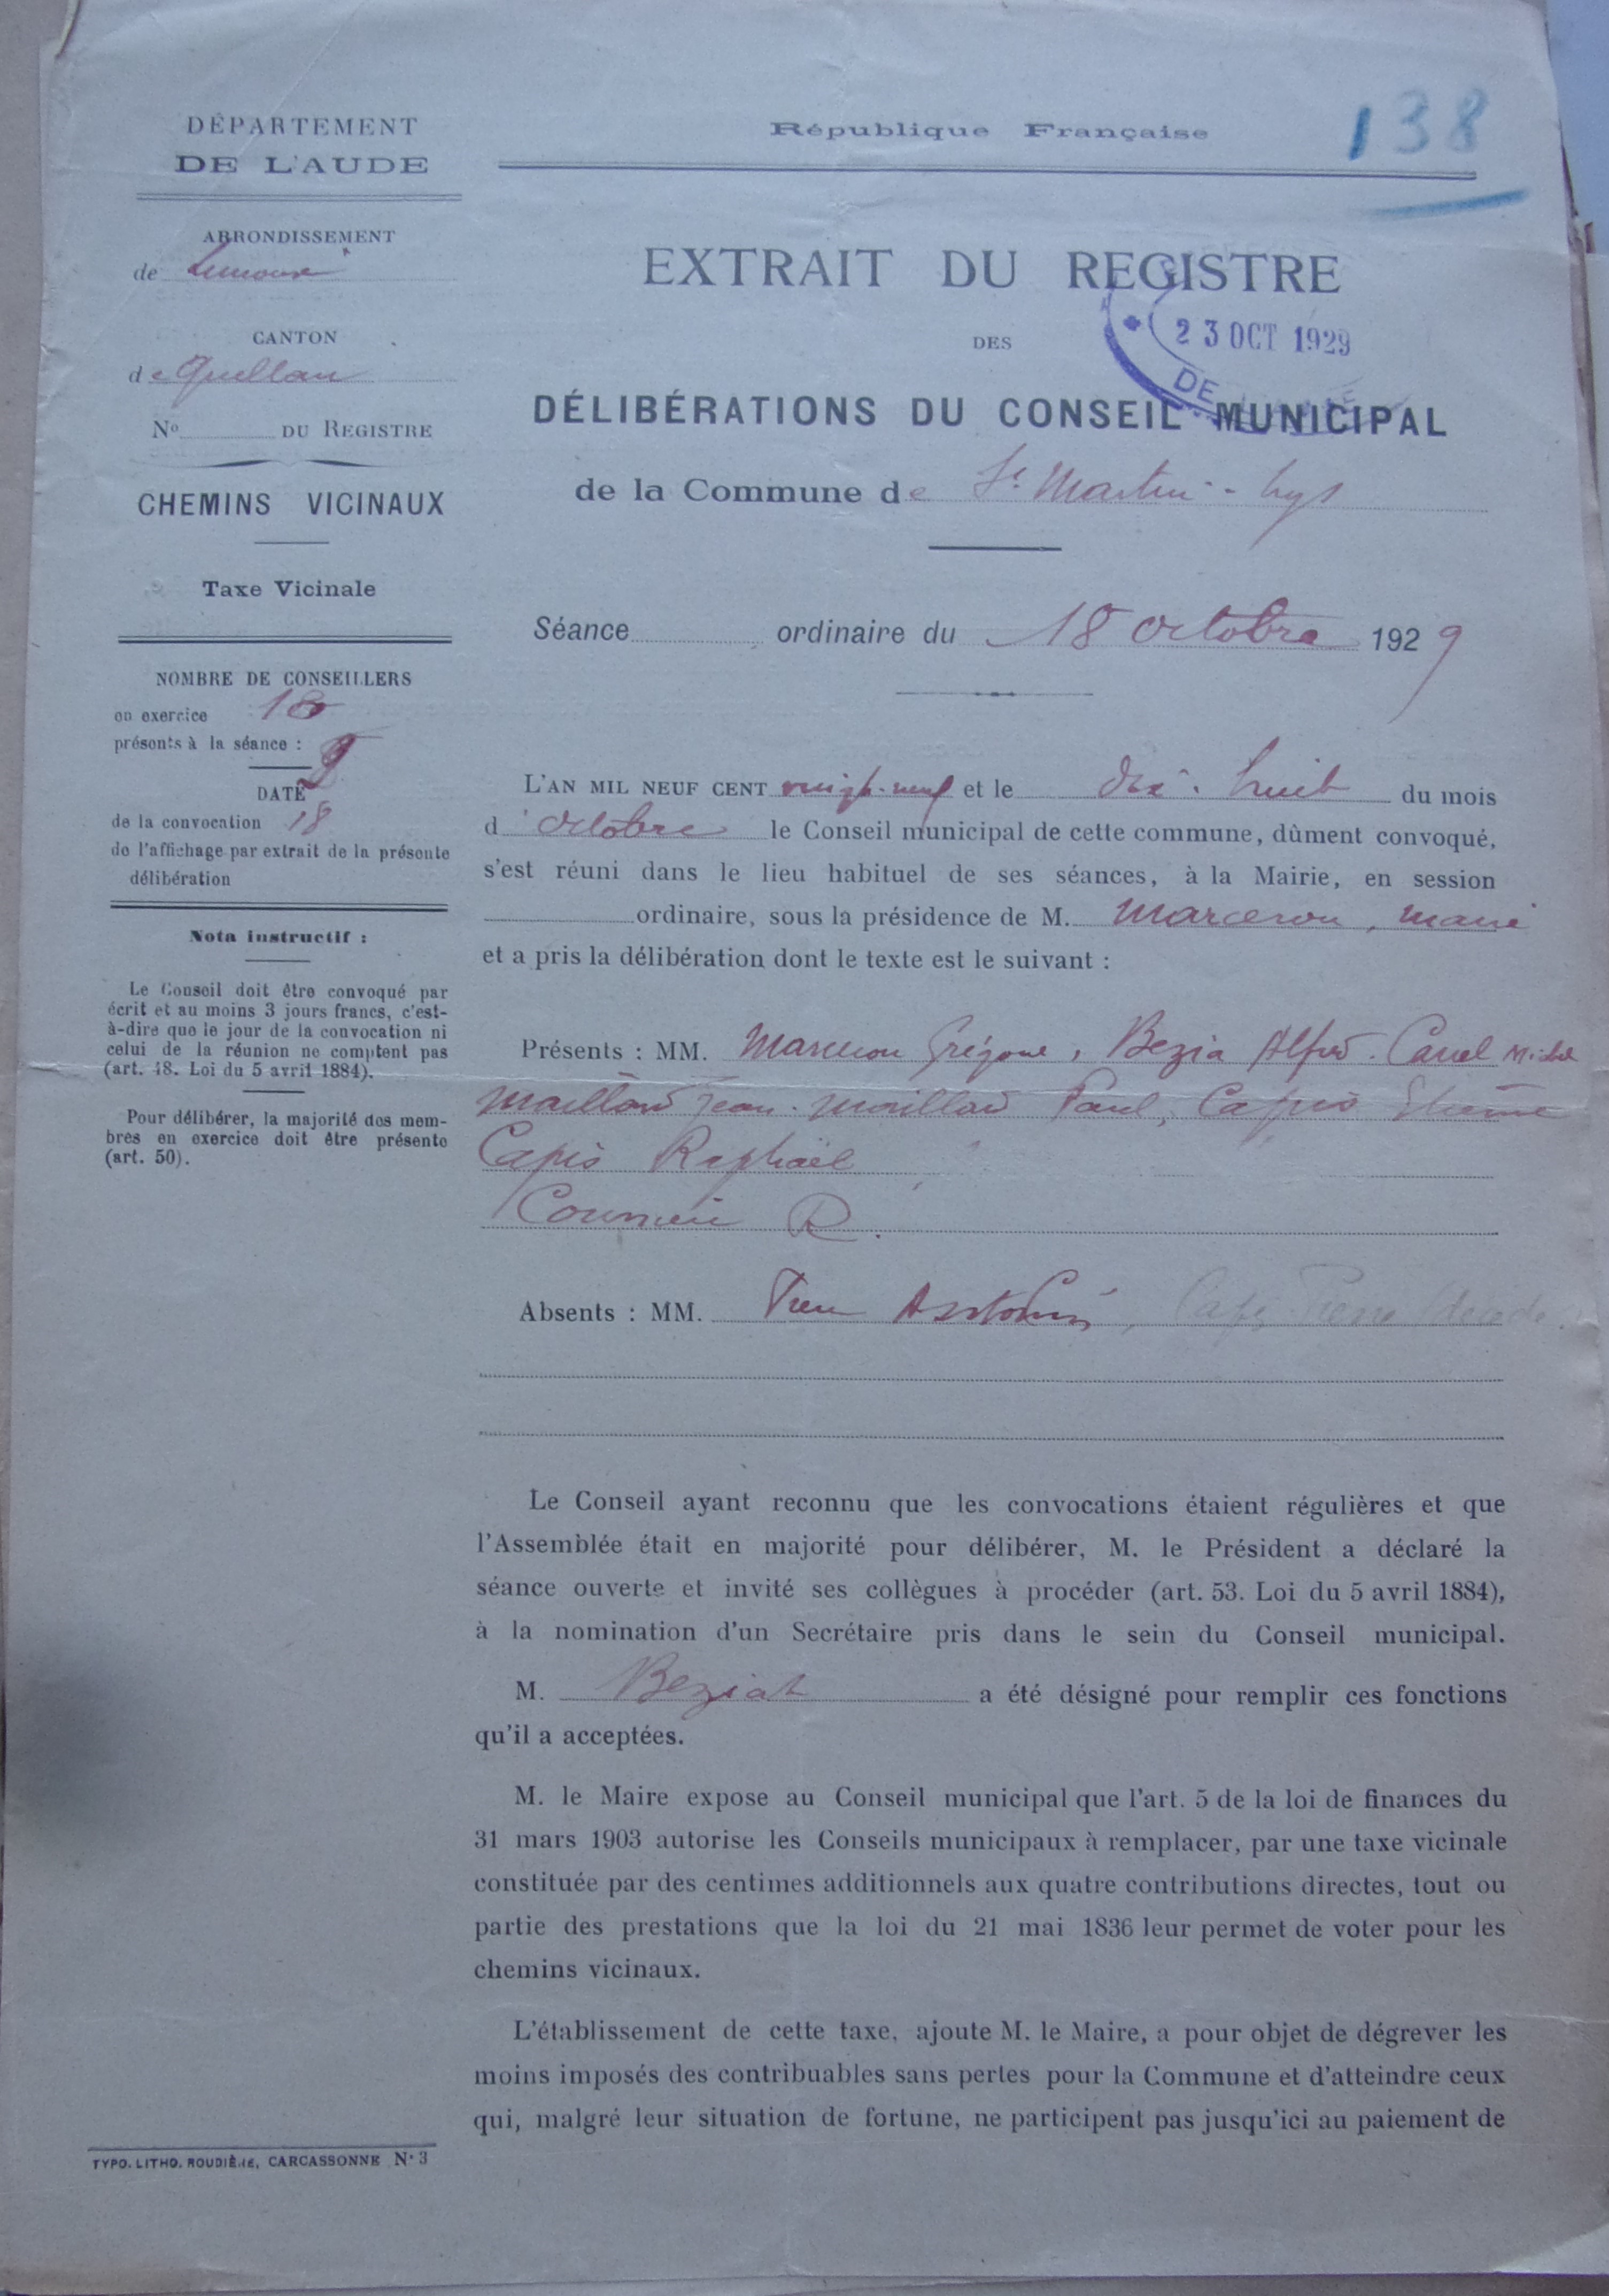 138
DÉPARTEMENT
DE L'AUDE
ARRONDISSEMENT
de Limoux
CANTON
de Quillan
No DU REGISTRE
CHEMINS VICINAUX
Taxe Vicinale
NOMBRE DE CONSEILLERS
en exercice 10
présents à la séance :
DATE
de la convocation 18
de l'affichage par extrait de la présente
délibération
Nota instructif :
Le Conseil doit être convoqué par
écrit et au moins 3 jours francs, c'est-
à-dire que le jour de la convocation ni
celui de la réunion ne comptent pas
(art. 48. Loi du 5 avril 1884).
Pour délibérer, la majorité des mem-
bres en exercice doit être présente
(art. 50).
TYPO. LITHO. ROUDIÈRE, CARCASSONNE N° 3
République Française
EXTRAIT DU REGISTRE
DES
23 OCT 1929
DE
DÉLIBÉRATIONS DU CONSEIL MUNICIPAL
de la Commune de St Martin-Lys
Séance ordinaire du 18 octobre 1929
L'AN MIL NEUF CENT vingt-neuf et le dix-huit du mois
d'octobre le Conseil municipal de cette commune, dûment convoqué,
s'est réuni dans le lieu habituel de ses séances, à la Mairie, en session
ordinaire, sous la présidence de M. Marceron, maire
et a pris la délibération dont le texte est le suivant :
Présents : MM. Marceron Grégoire, Bezia Alfred. Canel Michel
Maillard Jean. Maillard Paul, Capis Etienne
Capis Raphaël
R.
Absents : MM. Antonin, Capis Pierre
Le Conseil ayant reconnu que les convocations étaient régulières et que
l'Assemblée était en majorité pour délibérer, M. le Président a déclaré la
séance ouverte et invité ses collègues à procéder (art. 53. Loi du 5 avril 1884),
à la nomination d'un Secrétaire pris dans le sein du Conseil municipal.
M. Beziat a été désigné pour remplir ces fonctions
qu'il a acceptées.
M. le Maire expose au Conseil municipal que l'art. 5 de la loi de finances du
31 mars 1903 autorise les Conseils municipaux à remplacer, par une taxe vicinale
constituée par des centimes additionnels aux quatre contributions directes, tout ou
partie des prestations que la loi du 21 mai 1836 leur permet de voter pour les
chemins vicinaux.
L'établissement de cette taxe, ajoute M. le Maire, a pour objet de dégrever les
moins imposés des contribuables sans pertes pour la Commune et d'atteindre ceux
qui, malgré leur situation de fortune, ne participent pas jusqu'ici au paiement de